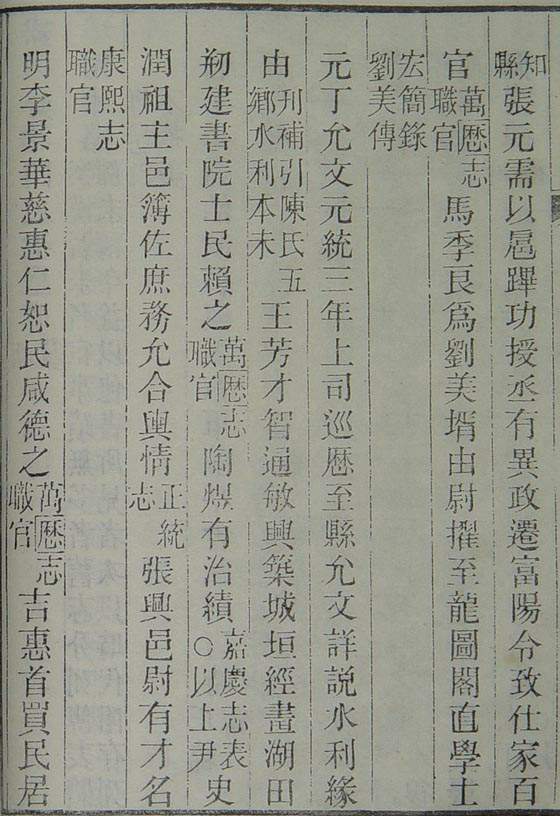 知縣張元需以扈蹕功授丞有異政遷富陽令致仕家百
官萬厯志職官馬季良爲劉美壻由尉擢至龍圖閣直學士
宏簡錄劉美傳
元丁允文元統三年上司巡厯至縣允文詳説水利緣
由刋補引陳氏五鄉水利本末王芳才智通敏興築城垣經畫湖田
剏建書院士民賴之萬厯志職官陶煜有治績嘉慶志表〇以上尹史
潤祖主邑簿佐庶務允合輿情正統志張興邑尉有才名
康熙志職官
明李景華慈惠仁恕民咸德之萬厯志職官吉惠首買民居